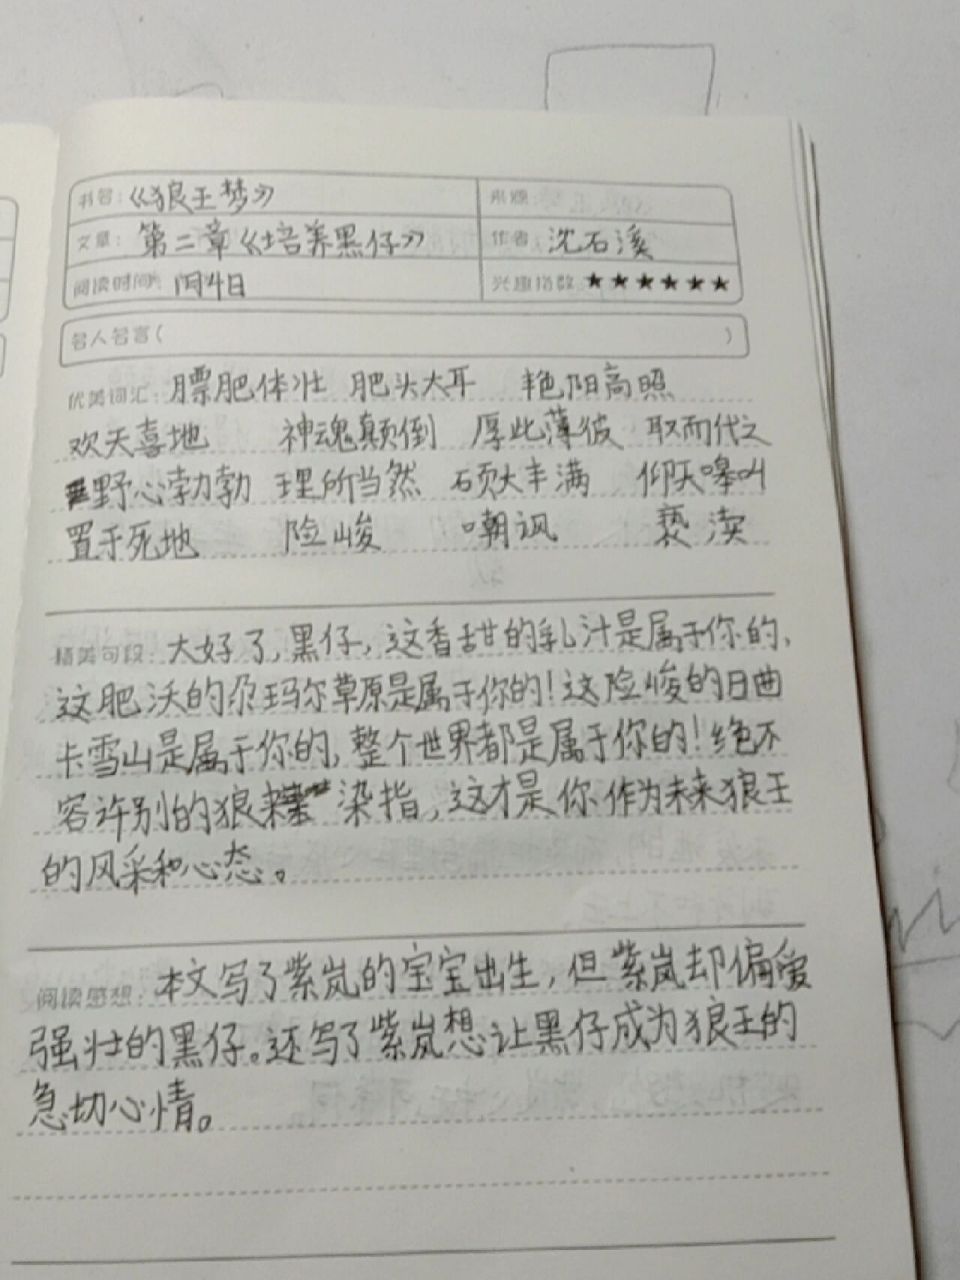 书名：《狼王梦》 来源：
文章：第二章《培养黑仔》 作者：沈石溪
阅读时间： 兴趣指数 ★★★★★★
名人名言（ ）
优美词汇：膘肥体壮 肥头大耳 艳阳高照
欢天喜地 神魂颠倒 厚此薄彼 取而代之
野心勃勃 理所当然 硕大丰满 仰天嗥叫
置于死地 险峻 嘲讽 亵渎
精美句段：大好了，黑仔，这香甜的乳汁是属于你的，
这肥沃的尕玛尔草原是属于你的！这险峻的日曲
卡雪山是属于你的，整个世界都是属于你的！绝不
容许别的狼来 染指，这才是你作为未来狼王
的风采和心态。
阅读感想：本文写了紫岚的宝宝出生，但紫岚却偏爱
强壮的黑仔。还写了紫岚想让黑仔成为狼王的
急切心情。